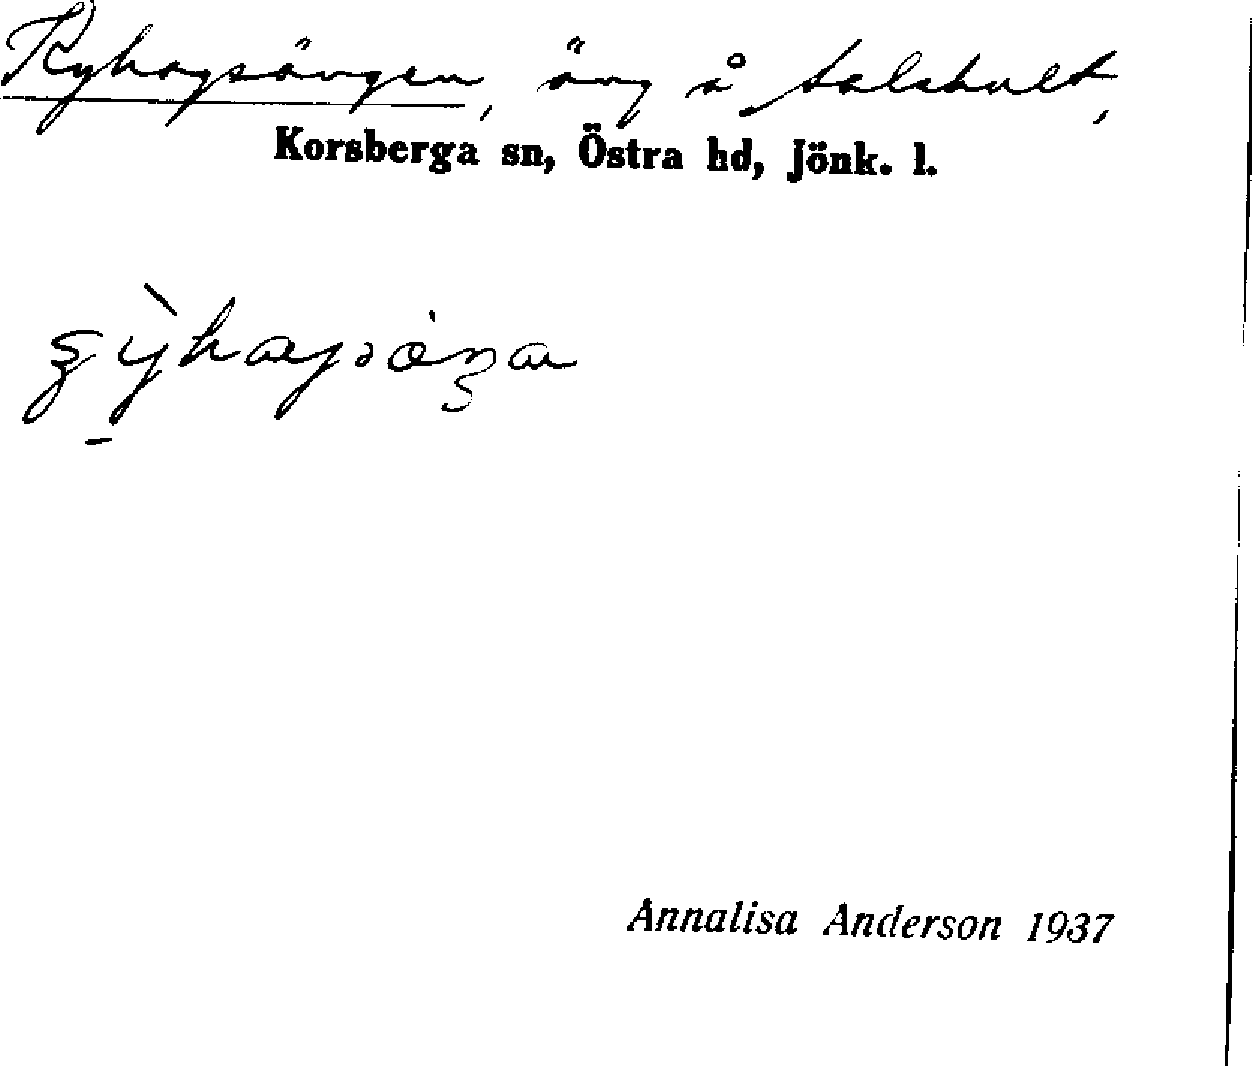 Ryhagsängen, äng å Salshult,
Korsberga sn, Östra hd, Jönk. l.
Annalisa Anderson 1937